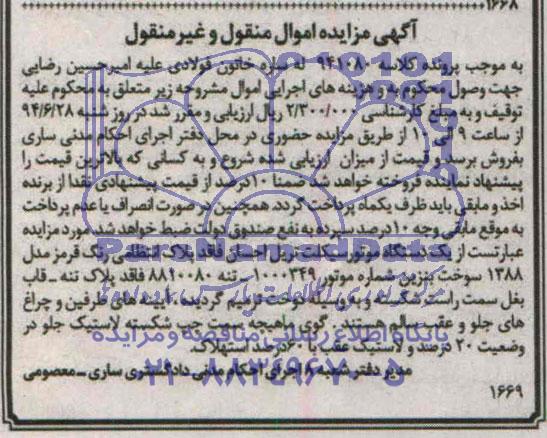 ۱۶۶۸
آگهی مزایده اموال منقول و غیر منقول
به موجب پرونده کلاسه ۹۴۱۰۸۰ له ساره خاتون فولادی علیه امیرحسین رضایی
جهت وصول محکوم به و هزینه های اجرایی اموال مشروحه زیر متعلق به محکوم علیه
توقیف و به مبلغ کارشناسی ۲/۳۰۰/۰۰۰ ریال ارزیابی و مقرر شد در روز شنبه ۹۴/۶/۲۸
از ساعت ۹ الی ۱۰ از طریق مزایده حضوری در محل دفتر اجرای احکام مدنی ساری
بفروش برسد و قیمت از میزان ارزیابی شده شروع و به کسانی که بالاترین قیمت را
پیشنهاد نماینده فروخته خواهد شد ضمنا ۱۰ درصد از قیمت پیشنهادی نقدا از برنده
اخذ و مابقی باید ظرف یکماه پرداخت گردد. همچنین در صورت انصراف یا عدم پرداخت
به موقع مابقی وجه ۱۰ درصد سپرده به نفع صندوق دولت ضبط خواهد شد. مورد مزایده
عبارتست از یک دستگاه موتور سیکلت تریل احسان فاقد پلاک انتظامی رنگ قرمز مدل
۱۳۸۸ سوخت بنزین شماره موتور ۱۰۰۰۳۴۹ - تنه ۸۸۱۰۰۸۰ فاقد پلاک تنه - قاب
بغل سمت راست شکسته و به وسیله دوخت ترمیم گردیده - آیینه های طرفین و چراغ
های جلو و عقب سالم هستند. گوی راهیچه سمت چپ شکسته لاستیک جلو در
وضعیت ۲۰ درصد و لاستیک عقب با ۶۰ درصد استهلاک.
مدیر دفتر شعبه اجرای احکام مدنی دادگستری ساری - معصومی
۱۶۶۹
ParsNamadData
پایگاه اطلاع رسانی مناقصه و مزایده
۰۲۱-۸۸۳۴۹۶۷۰-۵